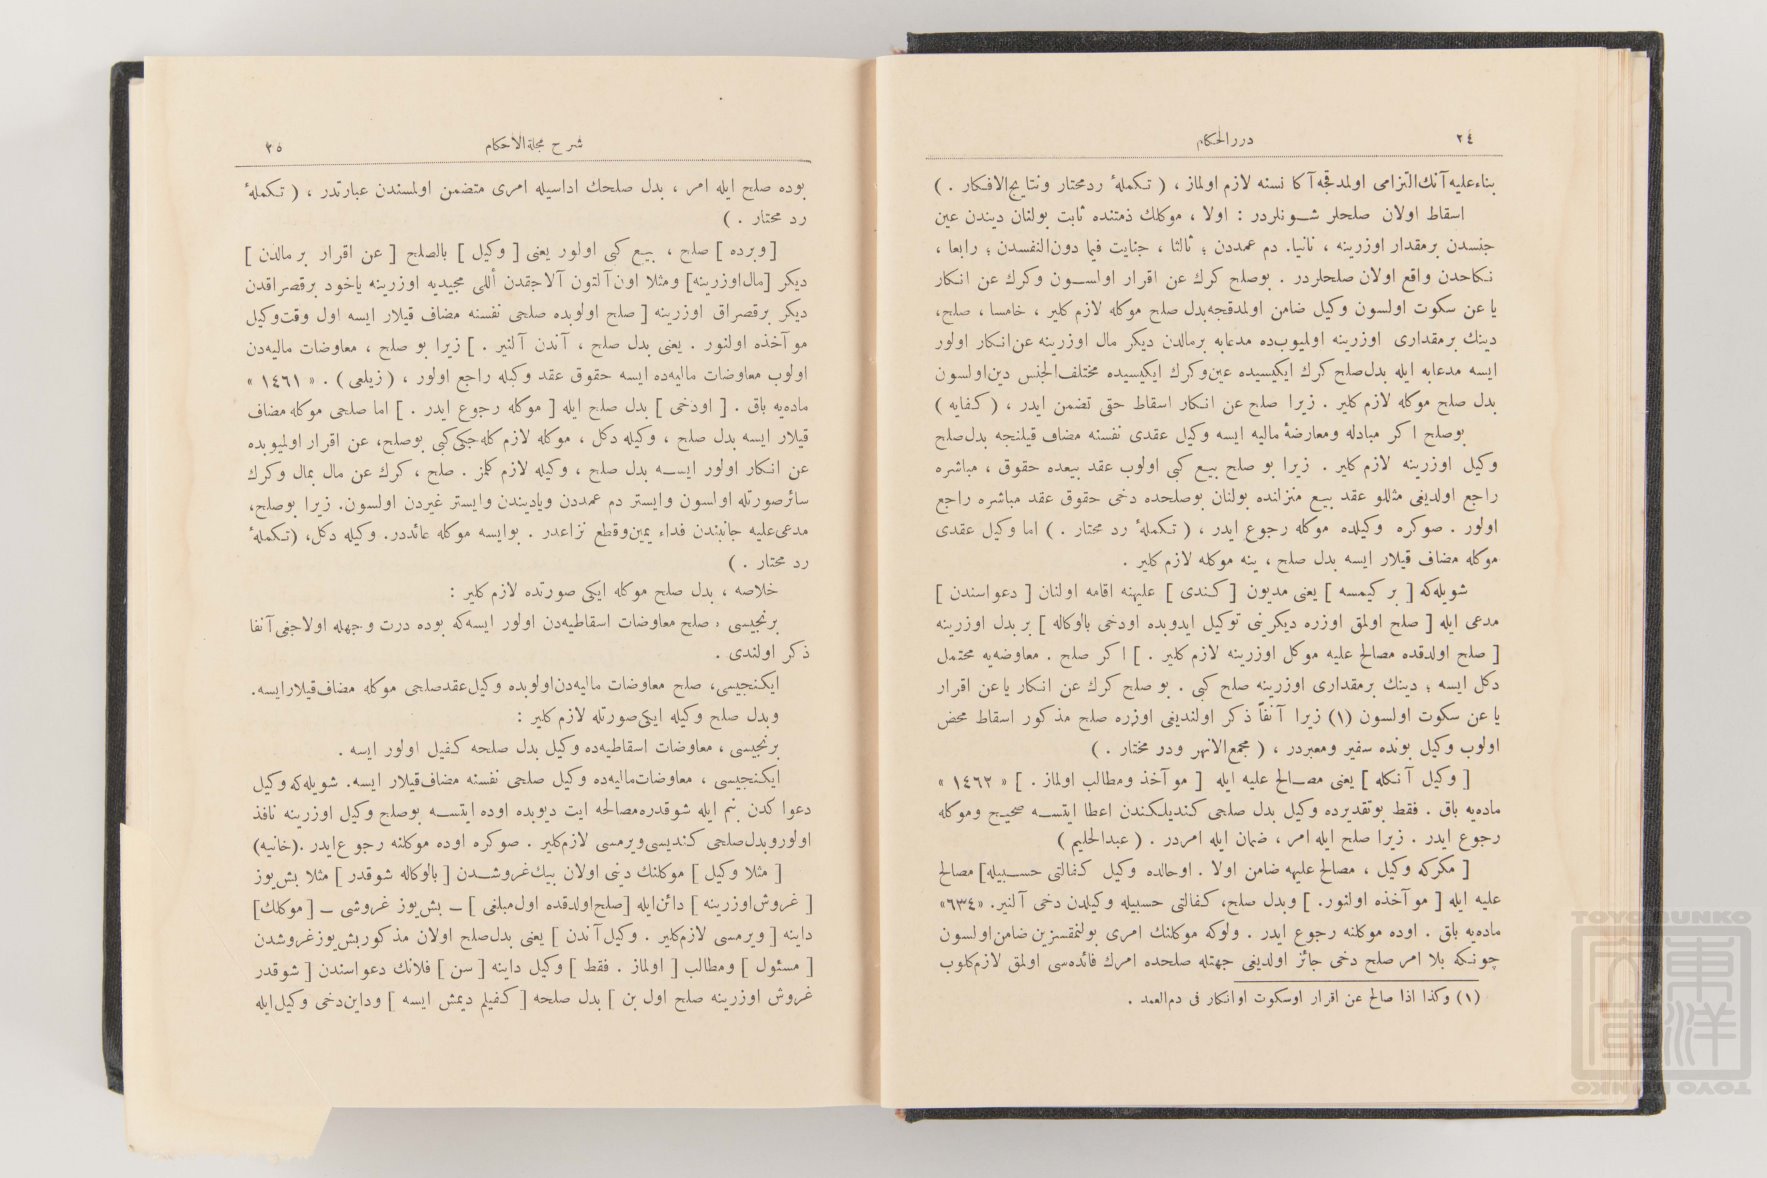 ٢٤
دررالحكام
بناءعليه آنك التزامى اولمدقجه آكا نسنه لازم اولماز ، ( تكملهٔ ردمختار ونتايج الافكار . )
اسقاط اولان صلحلر شونلردر : اولا ، موكلك ذمتنده ثابت بولنان ديندن عين
جنسدن برمقدار اوزرينه ، ثانيا. دم عمددن ؛ ثالثا ، جنايت فيما دون النفسدن ؛ رابعا ،
نكاحدن واقع اولان صلحلردر . بوصلح كرك عن اقرار اولسون وكرك عن انكار
يا عن سكوت اولسون وكيل ضامن اولمدقجه بدل صلح موكله لازم كلير ، خامسا ، صلح،
دينك برمقدارى اوزرينه اولميوب ده مدعابه برمالدن ديكر مال اوزرينه عن انكار اولور
ايسه مدعابه ايله بدل صلح كرك ايكيسيده عين وكرك ايكيسيده مختلف الجنس دين اولسون
بدل صلح موكله لازم كلير . زيرا صلح عن انكار اسقاط حقى تضمن ايدر ، ( كفايه )
بوصلح اكر مبادله ومعارضهٔ ماليه ايسه وكيل عقدى نفسنه مضاف قيلنجه بدل صلح
وكيل اوزرينه لازم كلير . زيرا بو صلح بيع كبى اولوب عقد بيعده حقوق ، مباشره
راجع اولديغى مثللو عقد بيع منزلنده بولنان بوصلحده دخى حقوق عقد مباشره راجع
اولور . صوكره وكيلده موكله رجوع ايدر ، ( تكملهٔ رد مختار . ) اما وكيل عقدى
موكله مضاف قيلار ايسه بدل صلح ، ينه موكله لازم كلير .
شويله كه [ بر كيمسه ] يعنى مديون [ كندى ] عليهنه اقامه اولنان [ دعواسندن ]
مدعى ايله [ صلح اولمق اوزره ديكرنى توكيل ايدوبده اودخى بالوكاله ] بر بدل اوزرينه
[ صلح اولدقده مصالح عليه موكل اوزرينه لازم كلير . ] اكر صلح . معاوضه يه محتمل
دكل ايسه ؛ دينك برمقدارى اوزرينه صلح كبى . بو صلح كرك عن انكار يا عن اقرار
يا عن سكوت اولسون (١) زيرا آنفاً ذكر اولنديغى اوزره صلح مذكور اسقاط محض
اولوب وكيل بونده سفير ومعبردر ، ( مجمع الانهر ودر مختار . )
[ وكيل آنكله ] يعنى مصالح عليه ايله [ موآخذ ومطالب اولماز . ] « ١٤٦٢ »
ماده يه باق . فقط بوتقديرده وكيل بدل صلحى كنديلكندن اعطا ايتسه صحيح وموكله
رجوع ايدر . زيرا صلح ايله امر ، ضمان ايله امردر . ( عبدالحليم )
[ مكركه وكيل ، مصالح عليهه ضامن اولا . اوحالده وكيل كفالتى حسبيله] مصالح
عليه ايله [ موآخذه اولنور. ] وبدل صلح، كفالتى حسبيله وكيلدن دخى آلنير. «٦٣٤»
ماده يه باق . اوده موكلنه رجوع ايدر . ولوكه موكلنك امرى بولنمقسزين ضامن اولسون
چونكه بلا امر صلح دخى جائز اولديغى جهتله صلحده امرك فائده سى اولمق لازم كلوب
(١) وكذا اذا صالح عن اقرار اوسكوت اوانكار فى دم العمد .
شرح مجلة الاحكام
٢٥
بوده صلح ايله امر ، بدل صلحك اداسيله امرى متضمن اولمسندن عبارتدر ، ( تكملهٔ
رد مختار . )
[ وبرده ] صلح ، بيع كبى اولور يعنى [ وكيل ] بالصلح [ عن اقرار برمالدن ]
ديكر [مال اوزرينه] ومثلا اون آلتون آلاجقدن أللى مجيديه اوزرينه ياخود برقصراقدن
ديكر برقصراق اوزرينه [ صلح اولوبده صلحى نفسنه مضاف قيلار ايسه اول وقت وكيل
موآخذه اولنور . يعنى بدل صلح ، آندن آلنير . ] زيرا بو صلح ، معاوضات ماليه دن
اولوب معاوضات ماليه ده ايسه حقوق عقد وكيله راجع اولور ، ( زيلعى ) . « ١٤٦١ »
ماده يه باق . [ اودخى ] بدل صلح ايله [ موكله رجوع ايدر . ] اما صلحى موكله مضاف
قيلار ايسه بدل صلح ، وكيله دكل ، موكله لازم كله جكى كبى بوصلح، عن اقرار اولميوبده
عن انكار اولور ايسه بدل صلح ، وكيله لازم كلمز . صلح ، كرك عن مال بمال وكرك
سائر صورتله اولسون وايستر دم عمددن وياديندن وايستر غيردن اولسون. زيرا بوصلح،
مدعى عليه جانبندن فداء يمين وقطع نزاعدر . بوايسه موكله عائددر. وكيله دكل، (تكملهٔ
رد مختار . )
خلاصه ، بدل صلح موكله ايكى صورتده لازم كلير :
برنجيسى ، صلح معاوضات اسقاطيه دن اولور ايسه كه بوده درت وجهله اولاجغى آنفا
ذكر اولندى .
ايكنجيسى، صلح معاوضات ماليه دن اولوبده وكيل عقد صلحى موكله مضاف قيلار ايسه.
وبدل صلح وكيله ايكى صورتله لازم كلير :
برنجيسى ، معاوضات اسقاطيه ده وكيل بدل صلحه كفيل اولور ايسه .
ايكنجيسى ، معاوضات ماليه ده وكيل صلحى نفسنه مضاف قيلار ايسه. شويله كه وكيل
دعواكدن بنم ايله شوقدره مصالحه ايت ديوبده اوده ايتسه بوصلح وكيل اوزرينه نافذ
اولوروبدل صلحى كنديسى ويرمسى لازم كلير . صوكره اوده موكلنه رجوع ايدر .(خانيه)
[ مثلا وكيل ] موكلنك دينى اولان بيك غروشدن [ بالوكاله شوقدر ] مثلا بش يوز
[ غروش اوزرينه ] دائن ايله [صلح اولدقده اول مبلغى ] ــ بش يوز غروشى ــ [موكلك]
داينه [ ويرمسى لازم كلير . وكيل آندن ] يعنى بدل صلح اولان مذكور بش يوز غروشدن
[ مسئول ] ومطالب [ اولماز . فقط ] وكيل داينه [ سن ] فلانك دعواسندن [ شوقدر
غروش اوزرينه صلح اول بن ] بدل صلحه [ كفيلم ديمش ايسه ] وداين دخى وكيل ايله
TOYO BUNKO